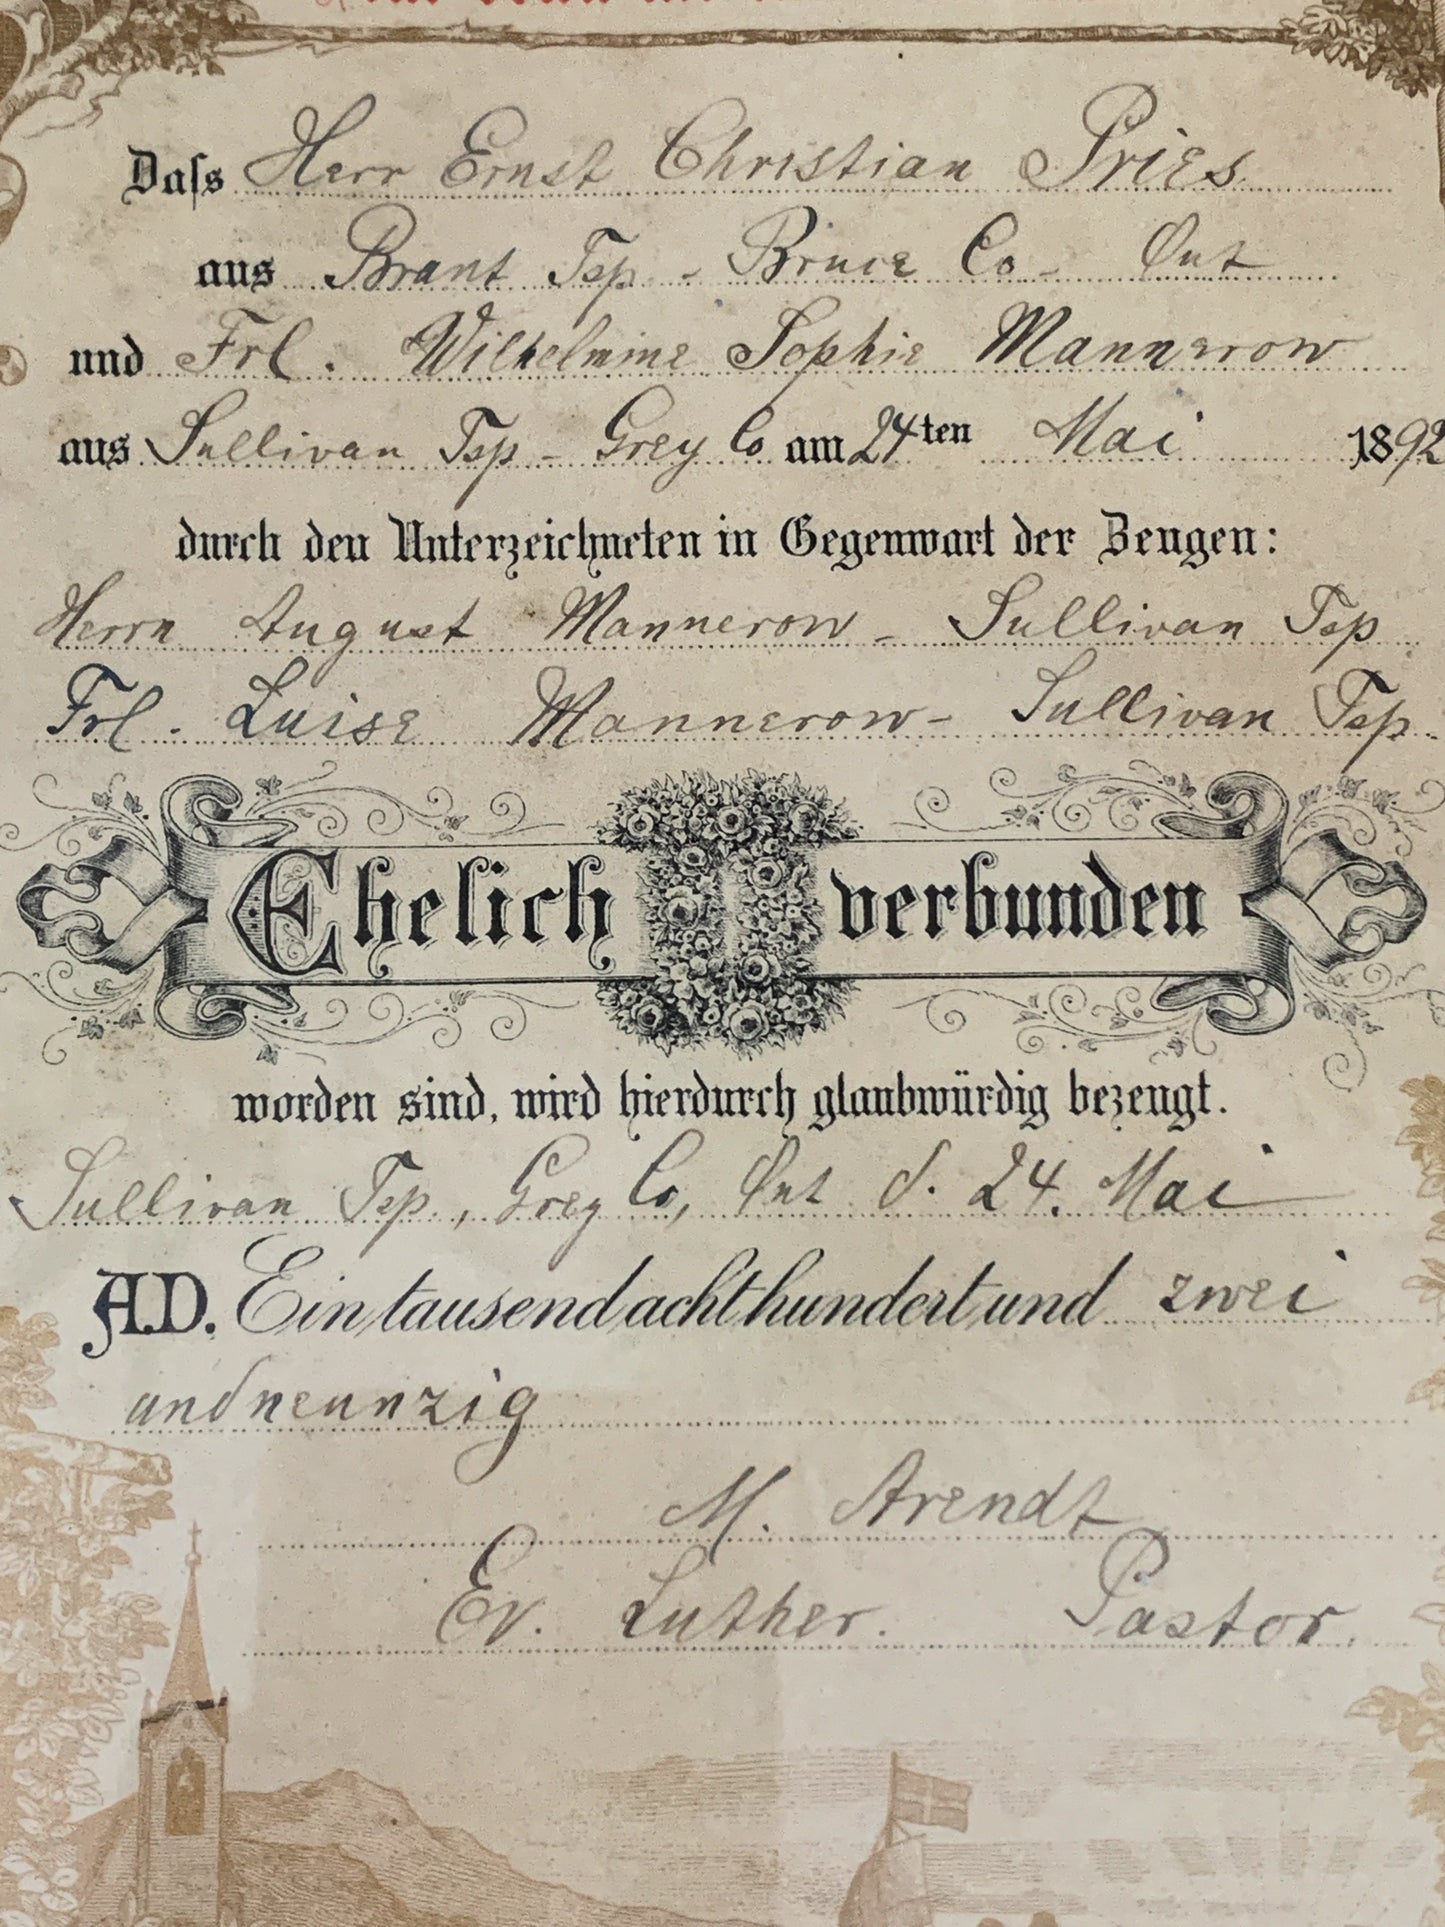 Daſs Herr Ernst Christian Pries
aus Brant Tsp - Bruce Co - Ont
und Frl. Wilhelmine Sophie Mannerow
aus Sullivan Tsp - Grey Co am 24ten Mai 1892
durch den Unterzeichneten in Gegenwart der Zeugen:
Herrn August Mannerow - Sullivan Tsp
Frl. Luise Mannerow - Sullivan Tsp.
Ehelich verbunden
worden sind, wird hierdurch glaubwürdig bezeugt.
Sullivan Tsp., Grey Co, Ont d. 24. Mai
A.D. Eintausendachthundertund zwei
undneunzig
M. Arendt
Ev. Luther. Pastor.